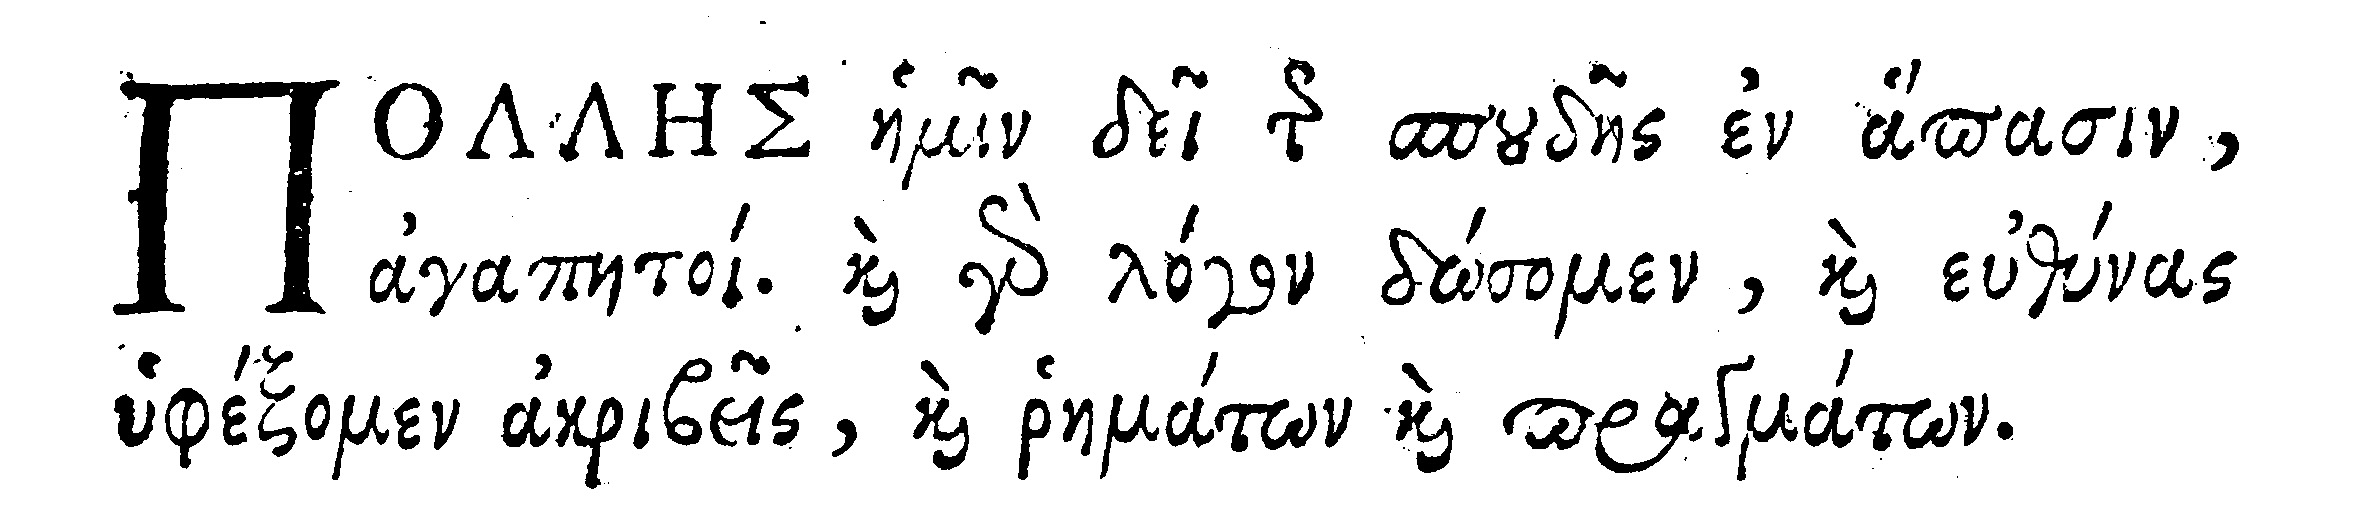 ΠΟΛΛΗΣ ἡμῖν δεῖ τῆς σπουδῆς ἐν ἅπασιν,
ἀγαπητοί. καὶ γὰρ λόγον δώσομεν, καὶ εὐθύνας
ὑφέξομεν ἀκριβεῖς, καὶ ῥημάτων καὶ πραγμάτων.